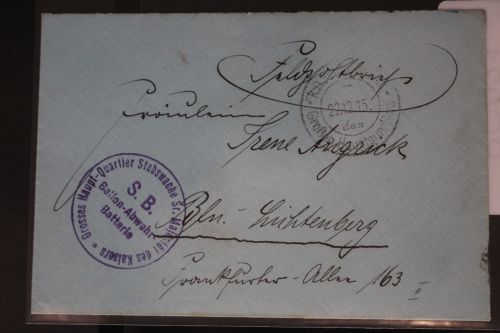 Feldpostbrief
22.12.15.
des
Fräulein
Irene
Bln. Lichtenberg
Frankfurter-Allee 163 II
Grosses Haupt-Quartier Stabswache Sr. Majestät des Kaisers
S. B.
Ballon-Abwehr
Batterie